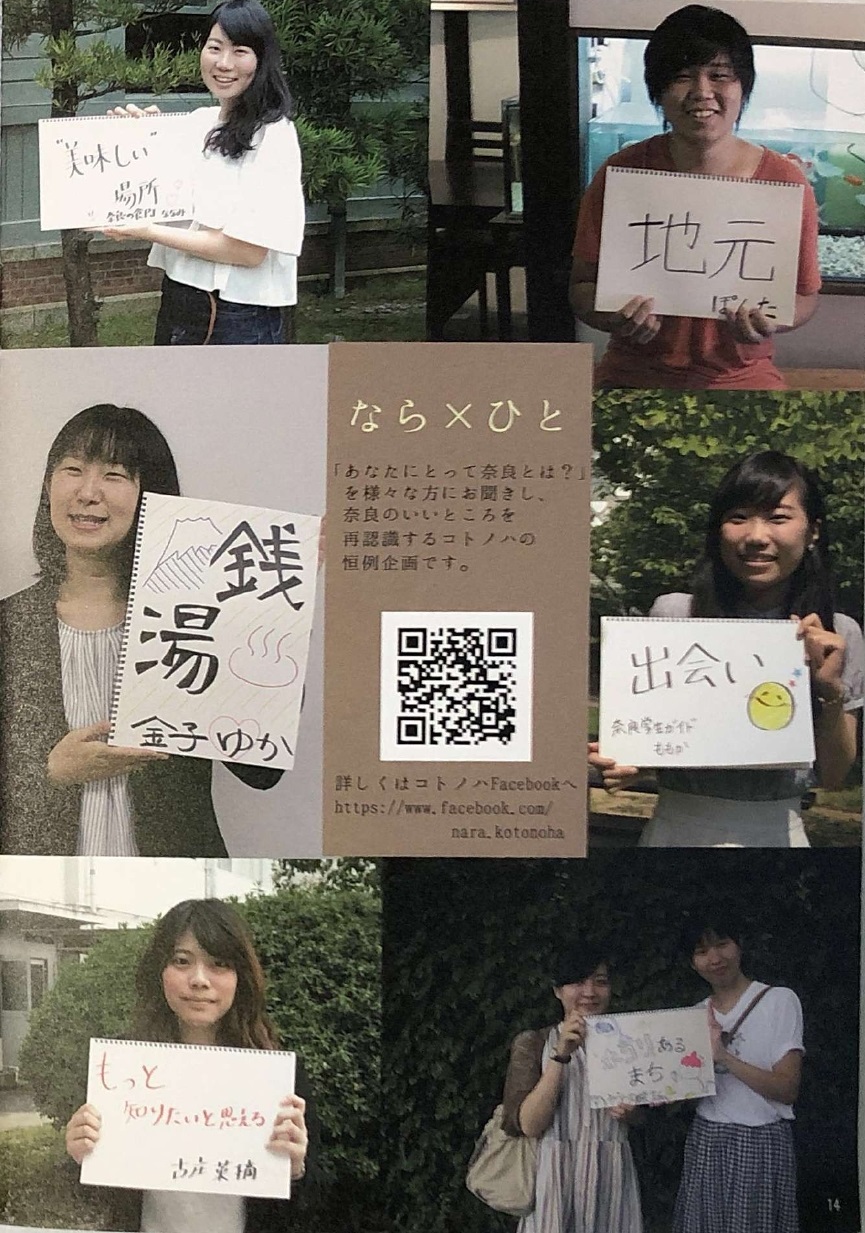 "美味しい"
場所
地元
ぽんた
なら×ひと
「あなたにとって奈良とは?」
を様々な方にお聞きし、
奈良のいいところを
再認識するコトノハの
恒例企画です。
詳しくはコトノハFacebookへ
https://www.facebook.com/
nara.kotonoha
銭
湯
金子ゆか
出会い
奈良学生ガイド
ももか
もっと
知りたいと思える
ある
まち
14